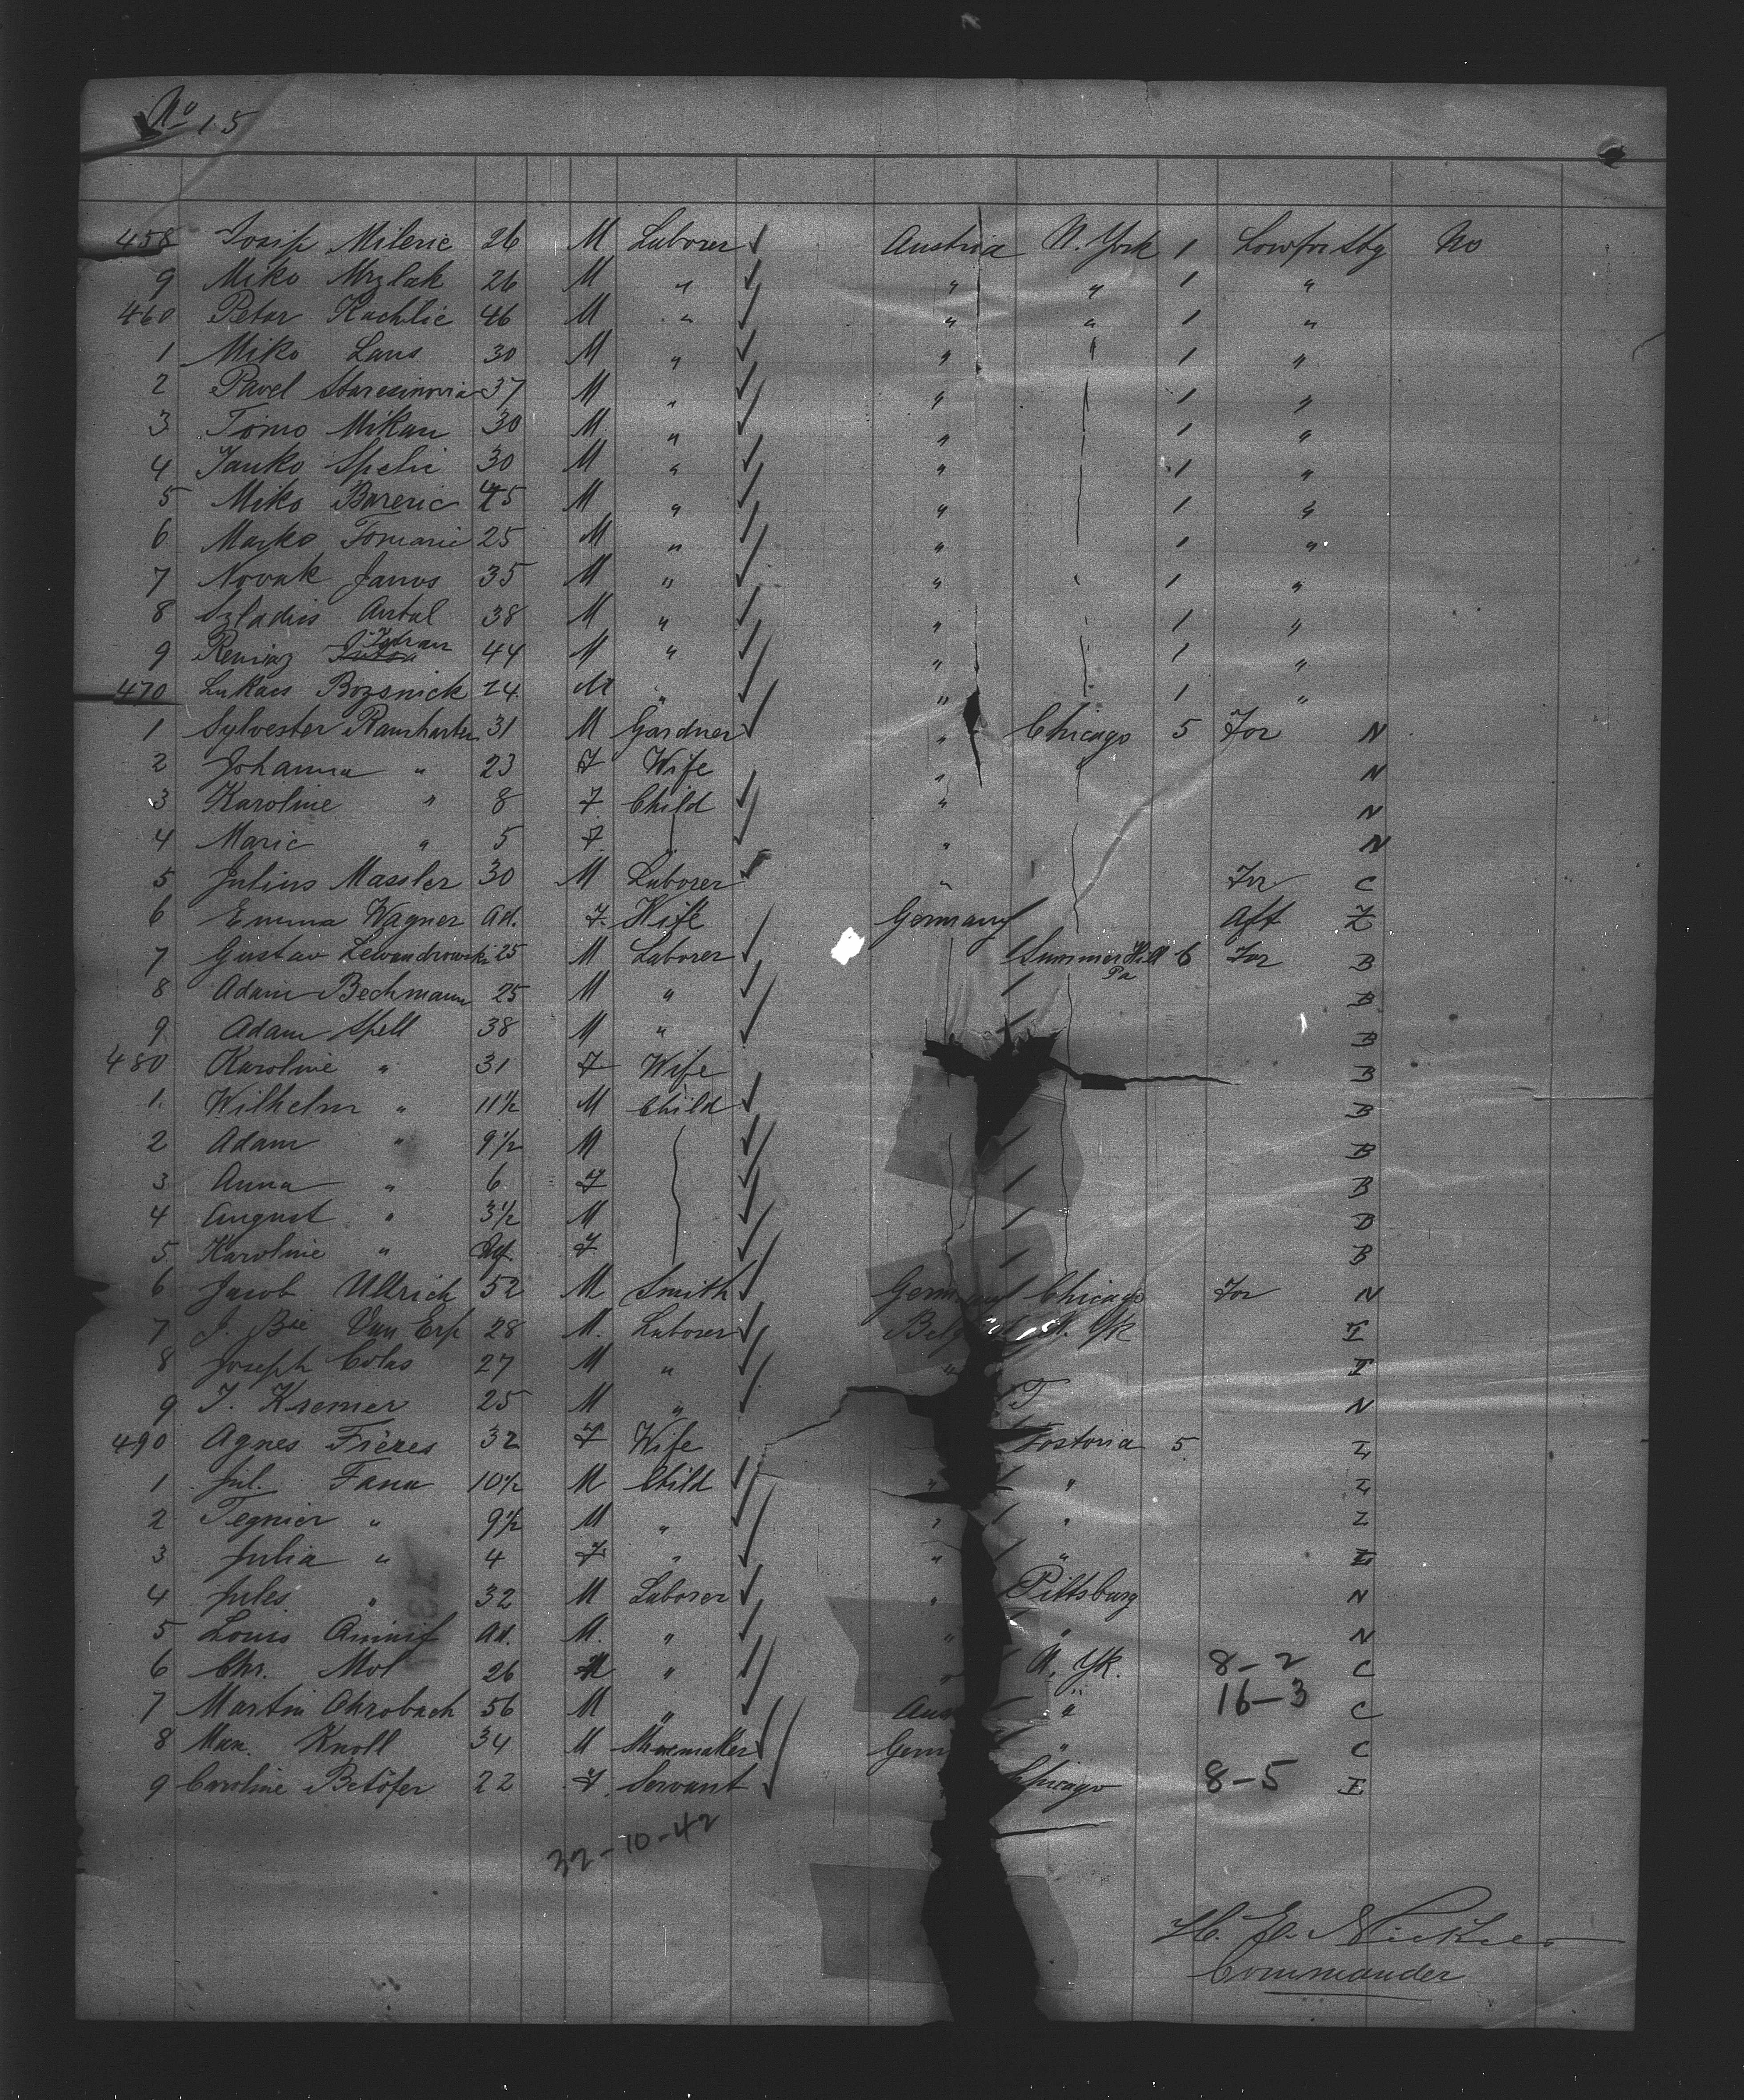 No 15
458 Josip Mileric 26 M Laborer Austria N. York 1 Low for Stbg No
9 Miko Mrzlak 26 M " " " 1 "
460 Petar Kachlic 46 M " " " 1 "
1 Miko Laus 30 M " " " 1 "
2 Pavel 37 M " " 1 "
3 Tomo Mikan 30 M " " 1 "
4 Janko Spelic 30 M " " 1 "
5 Miko Bareric 45 M " " 1 "
6 Marko Tomasic 25 M " " 1 "
7 Novak Janos 35 M " " 1 "
8 Szladis Antal 38 M " " 1 "
9 44 M " " 1 "
470 Lukacs Bozsnick 24 M " " 1 "
1 Sylvester 31 M Gardner " Chicago 5 For N
2 Johanna " 23 F Wife " N
3 Karoline " 8 F Child " N
4 Marie " 5 F " N
5 Julius Massler 30 M Laborer " For C
6 Emma Wagner Ad. F Wife Germany Aft Z
7 Gustav Lewandrowski 25 M Laborer Summer Hill Pa 6 For B
8 Adam Bechmann 25 M " B
9 Adam Spell 38 M " B
480 Karoline " 31 F Wife B
1 Wilhelm " 11½ M Child B
2 Adam " 9½ M B
3 Anna " 6 F B
4 August " 3½ M B
5 Karoline " F B
6 Jacob Ullrich 52 M Smith Germany Chicago For N
7 J. Bte Van Erp 28 M. Laborer N. Yk I
8 Joseph Colas 27 M " " I
9 J. Kremer 25 M " N
490 Agnes Frères 32 F Wife Fostoria 5 Z
1 Jul. Fana 10½ M Child " " Z
2 Tegnier " 9½ M " " " Z
3 Julia " 4 F " " " Z
4 Jules " 32 M Laborer " Pittsburg N
5 Louis Ad. M. " " " N
6 Chr. Mol 26 M " " N. Yk. 8-2 C
7 Martin Ohrobach 56 M " Aus " 16-3 C
8 Max. Knoll 34 M Shoemaker Germ " C
9 Caroline Betöfer 22 F. Servant Chicago 8-5 I
32-10-42
Commander